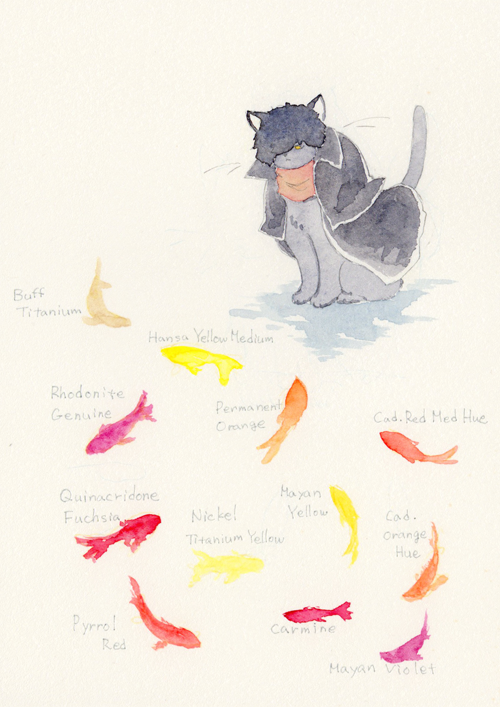 Buff
Titanium
Hansa Yellow Medium
Rhodonite
Genuine
Permanent
Orange
Cad. Red Med Hue
Quinacridone
Fuchsia
Nickel
Titanium Yellow
Mayan
Yellow
Cad.
Orange
Hue
Pyrrol
Red
Carmine
Mayan Violet